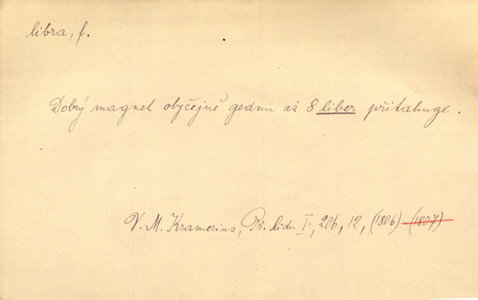 libra, f.
Dobrý magnet obyčejně gednu až 8 liber přitahuge.
V. M. Kramerius, Př. lidu I., 206, 12, (1806) (1807)